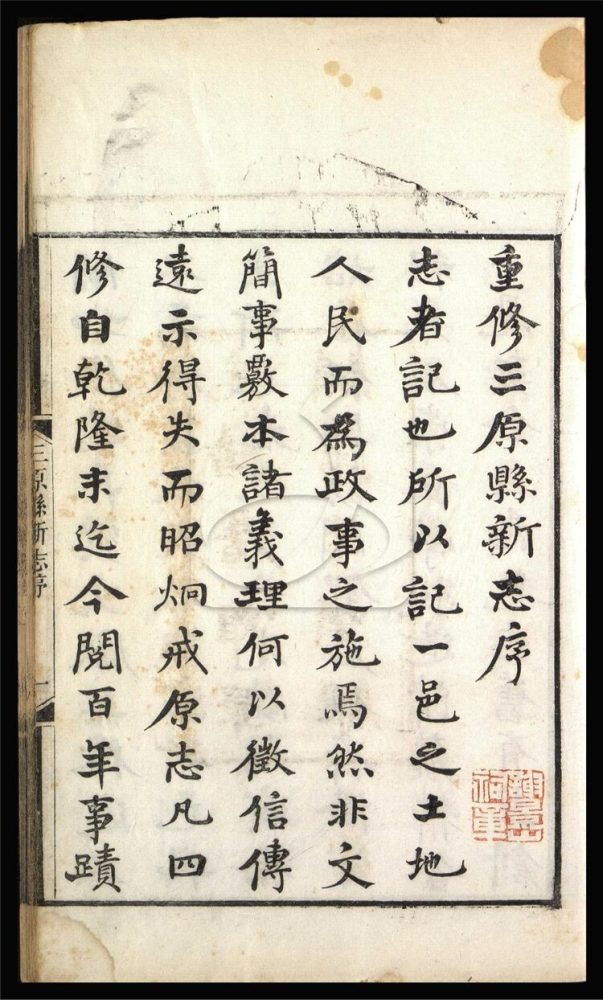 重修三原縣新志序
志者記也所以記一邑之土地
人民而為政事之施焉然非文
簡事覈本諸義理何以徵信傳
遠示得失而昭炯戒原志凡四
修自乾隆末迄今閱百年事蹟
三原縣新志序
一